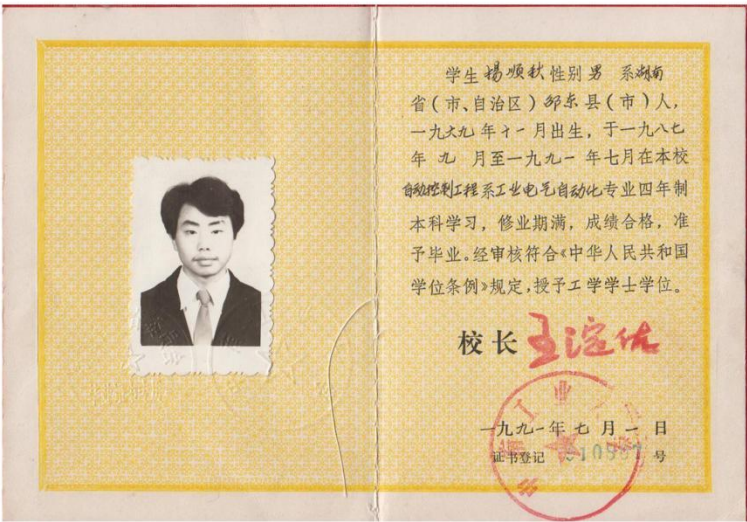 学生杨顺秋性别男 系湖南
省(市、自治区)邵东县(市)人,
一九六九年十一月出生,于一九八七
年九月至一九九一年七月在本校
自动控制工程系工业电气自动化专业四年制
本科学习,修业期满,成绩合格,准
予毕业。经审核符合《中华人民共和国
学位条例》规定,授予工学学士学位。
校长 王淀佐
一九九一年七月一日
证书登记 号
工业